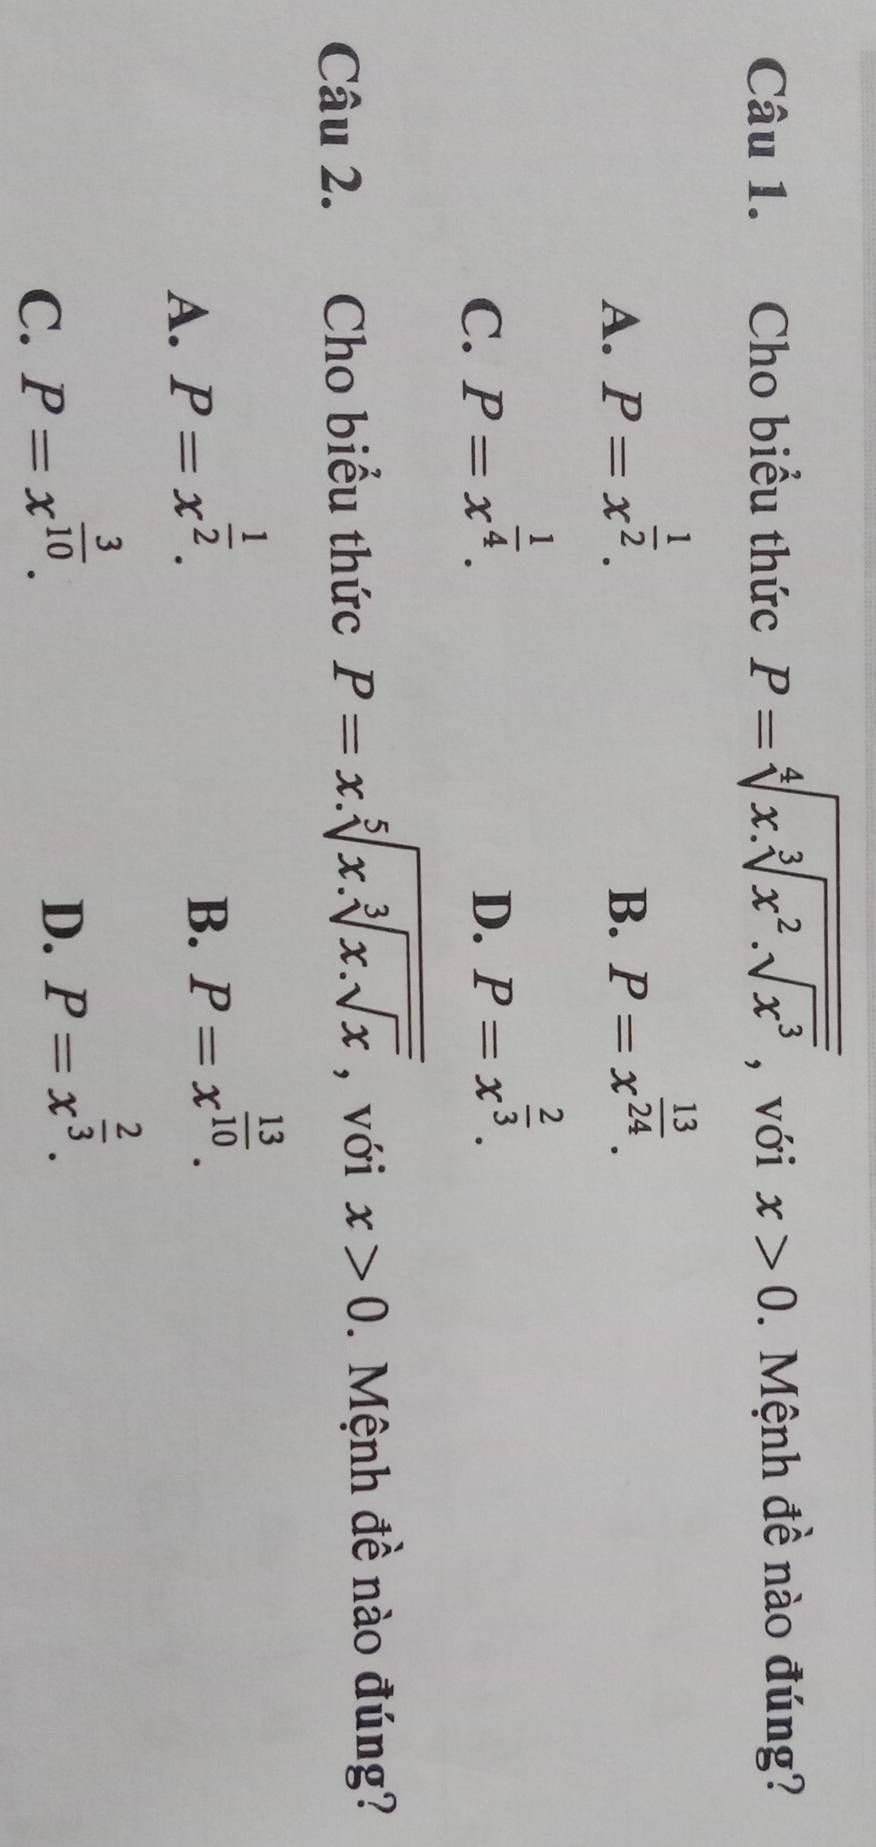 Câu 1. Cho biểu thức $P=\sqrt[4]{x.\sqrt[3]{x^2.\sqrt{x^3}}}$, với $x>0$. Mệnh đề nào đúng?
A. $P=x^{\frac{1}{2}}$. B. $P=x^{\frac{13}{24}}$.
C. $P=x^{\frac{1}{4}}$. D. $P=x^{\frac{2}{3}}$.
Câu 2. Cho biểu thức $P=x.\sqrt[5]{x.\sqrt[3]{x.\sqrt{x}}}$, với $x>0$. Mệnh đề nào đúng?
A. $P=x^{\frac{1}{2}}$. B. $P=x^{\frac{13}{10}}$.
C. $P=x^{\frac{3}{10}}$. D. $P=x^{\frac{2}{3}}$.